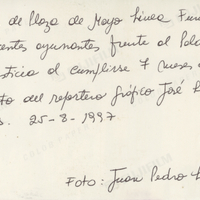 de Plaza de Mayo Línea Fun
entes ayunantes frente al Pala
sticia al cumplirse 7 meses
to del reportero gráfico José L
s. 25-8-1997
Foto: Juan Pedro